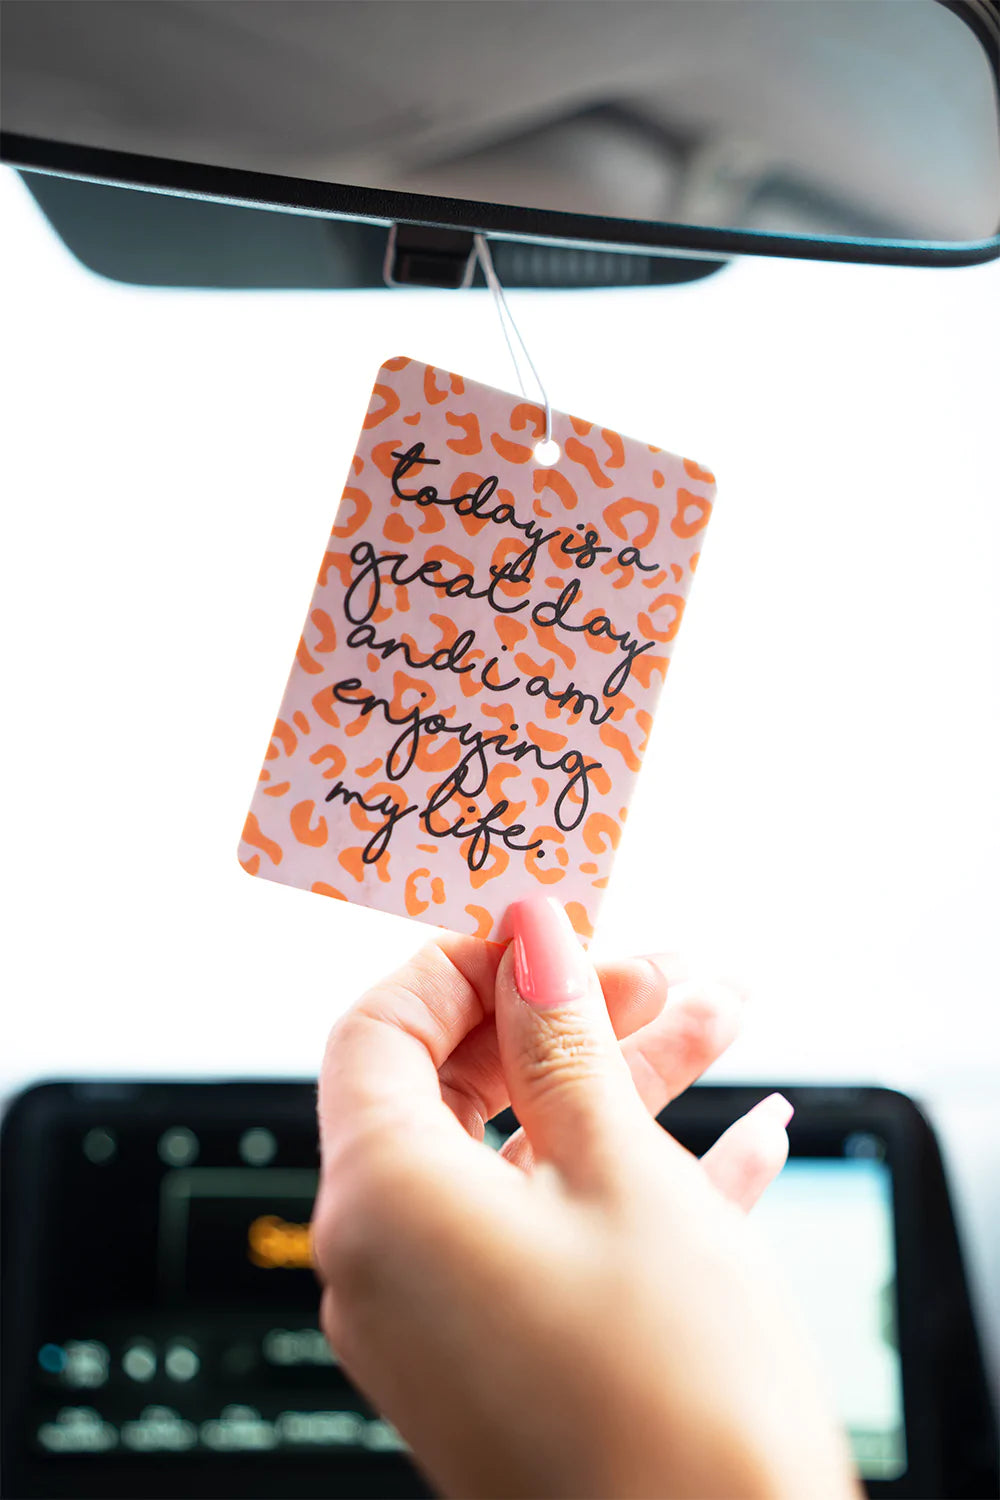 today is a
great day
and i am
enjoying
my life.